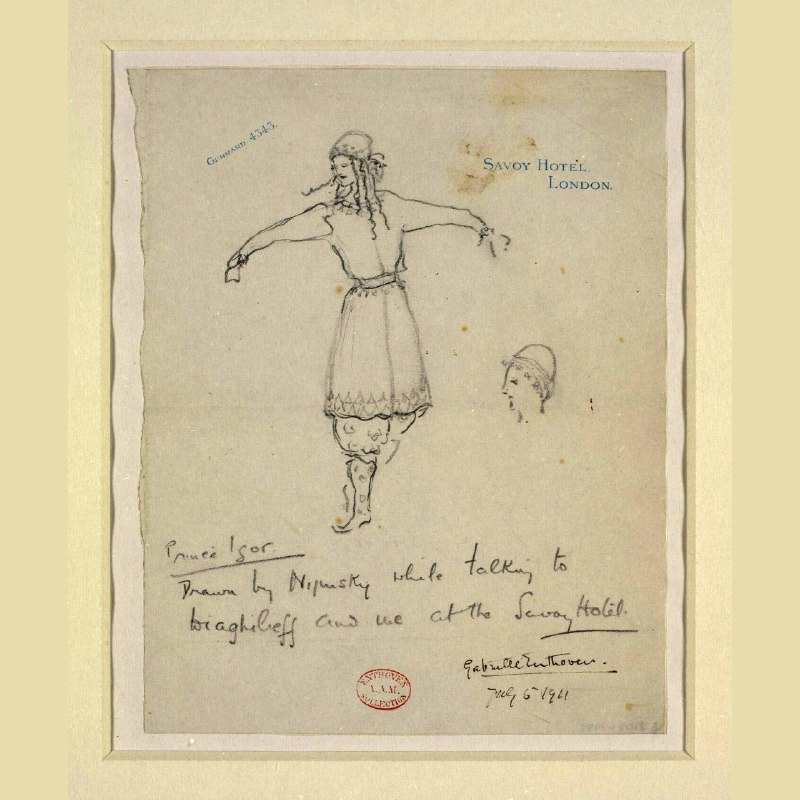 GERRARD 4343.
SAVOY HOTEL.
LONDON.
Prince Igor
Drawn by Nijinsky while talking to
Diaghileff and me at the Savoy Hotel.
Gabrielle Enthoven.
July 6 1911
ENTHOVEN
V.A.M.
COLLECTION